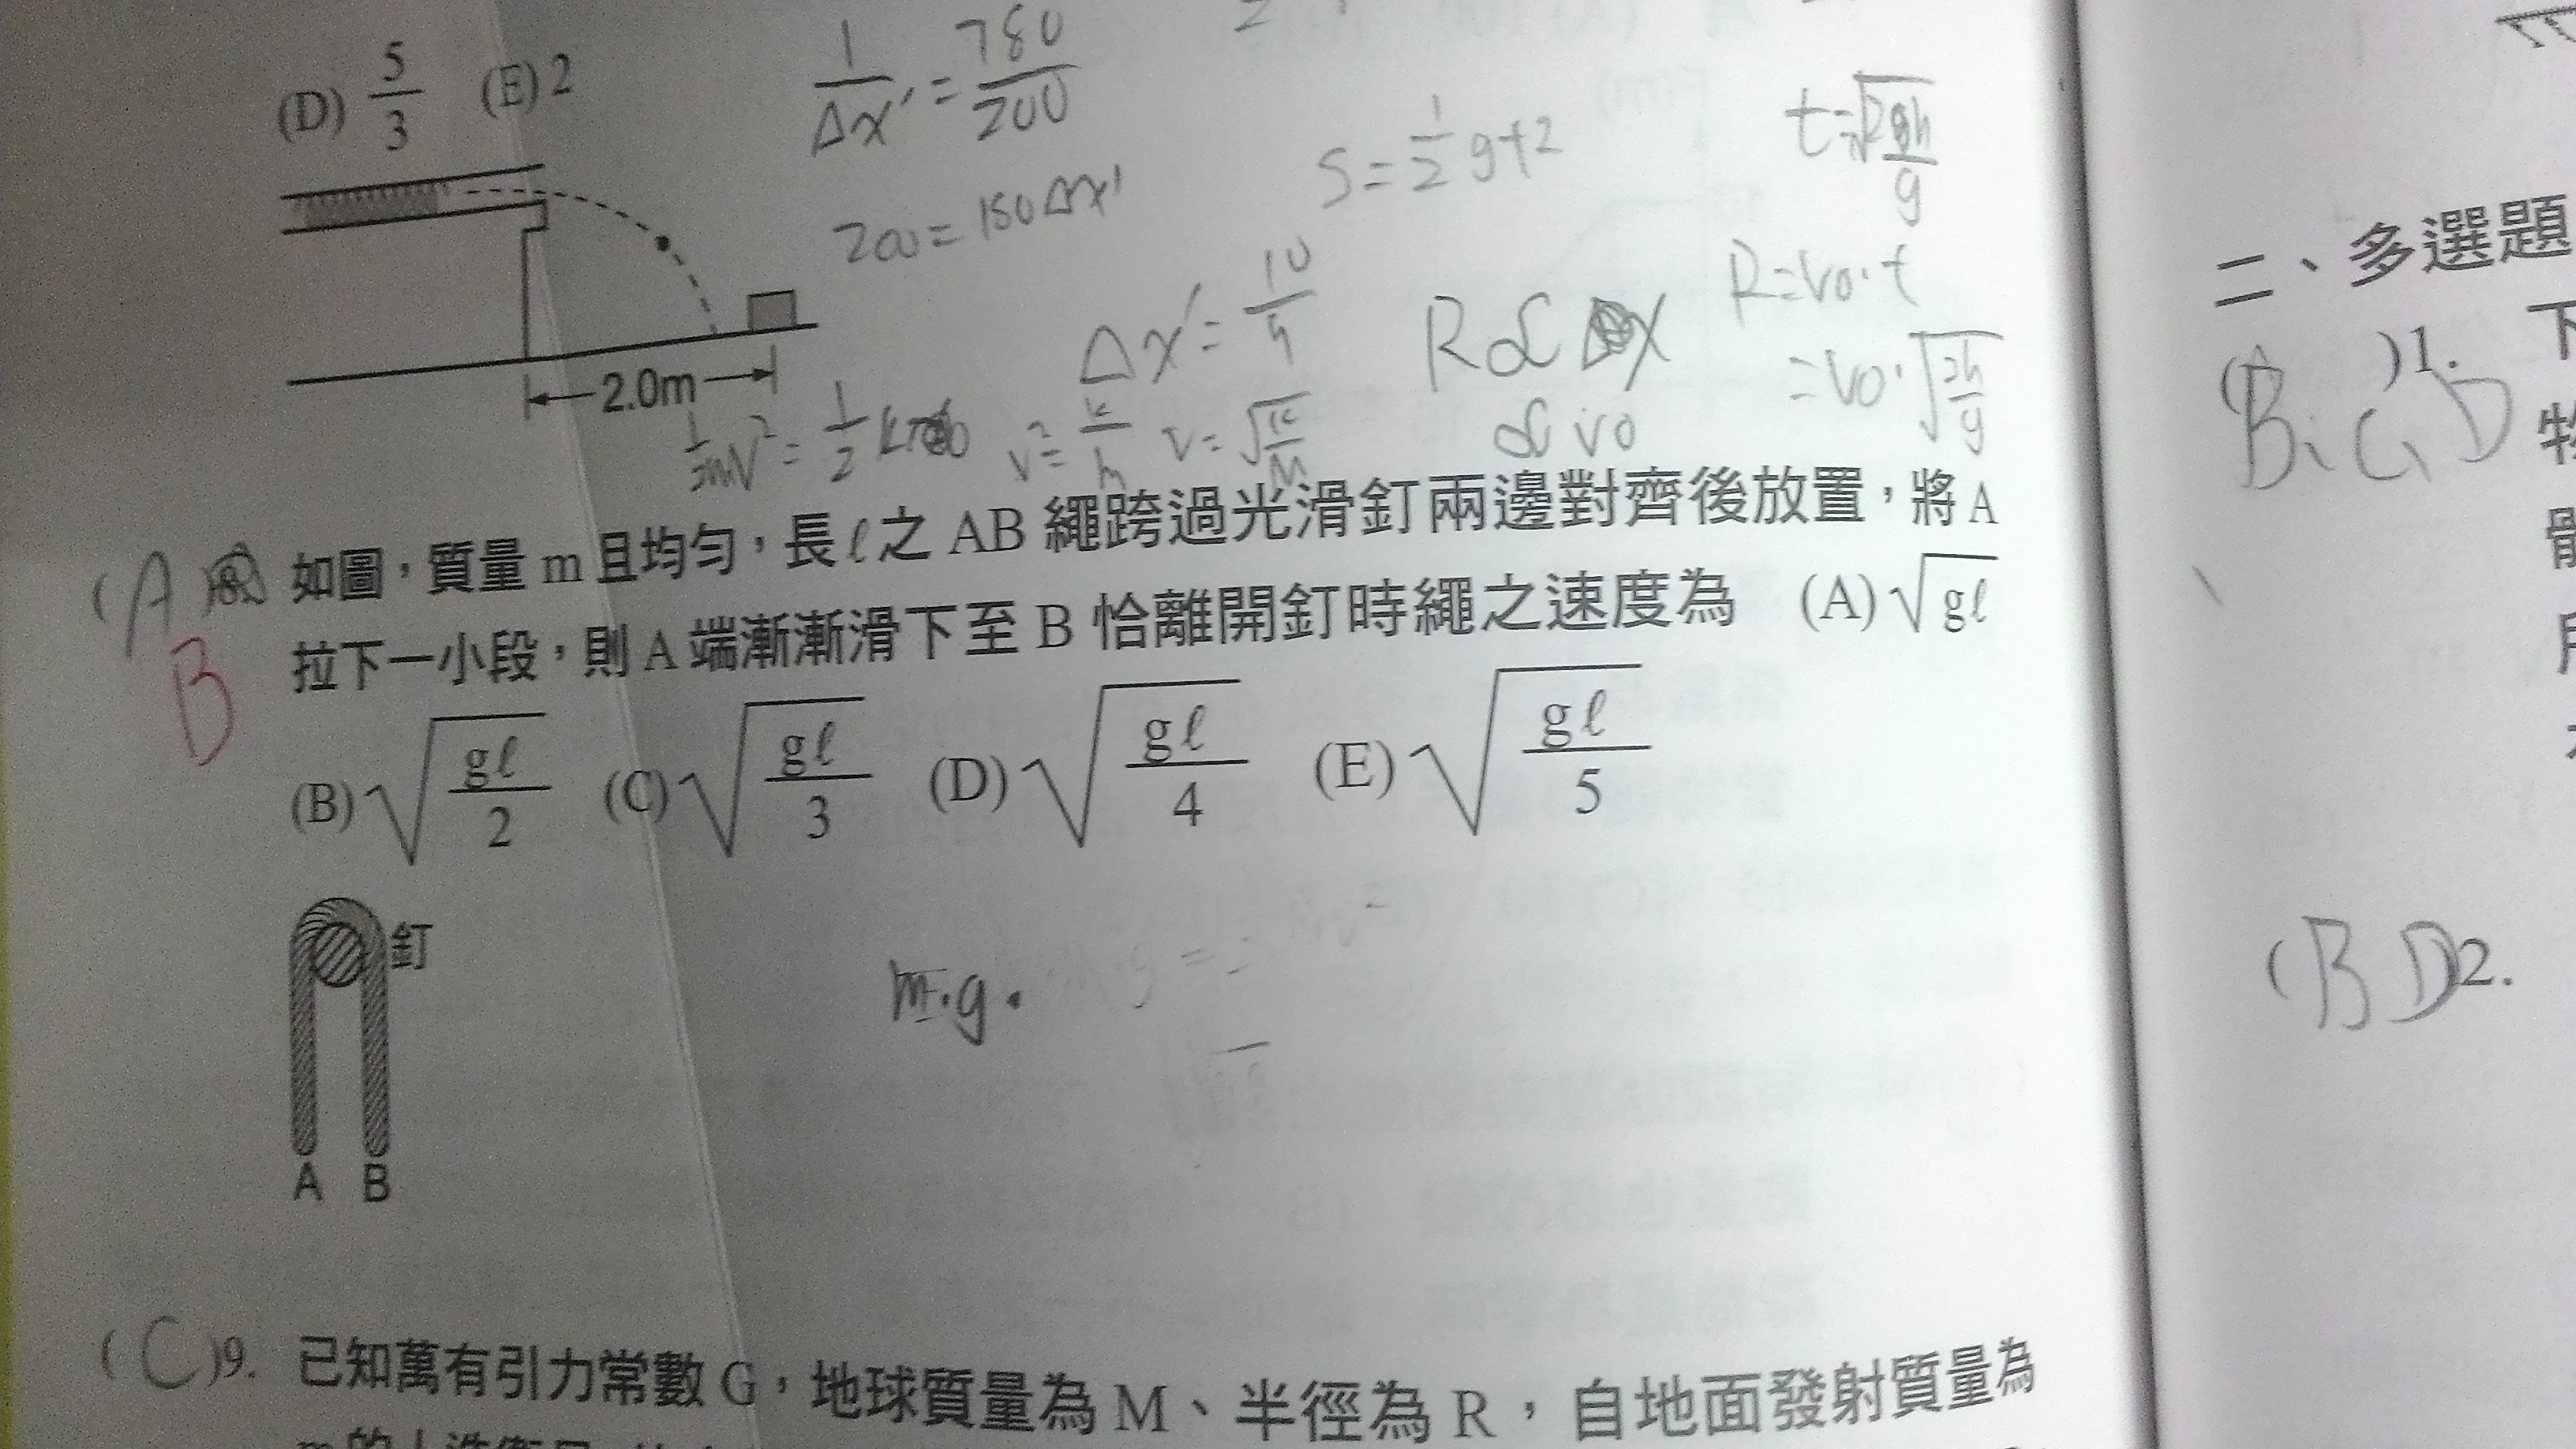 (D) 5/3 (E) 2
1/Δx' = 780/200
200 = 180Δx'
Δx' = 10/9
S = 1/2 gt2
R = v0·t
= v0·√(2h/g)
R∝ x
∝ v0
2.0m
1/2 mV² = 1/2
V = √(K/M)
(A
B
如圖，質量 m 且均勻，長 ℓ 之 AB 繩跨過光滑釘兩邊對齊後放置，將 A
拉下一小段，則 A 端漸漸滑下至 B 恰離開釘時繩之速度為 (A) √gℓ
(B) √(gℓ/2) (C) √(gℓ/3) (D) √(gℓ/4) (E) √(gℓ/5)
釘
A B
m·g·
(C)9. 已知萬有引力常數 G，地球質量為 M、半徑為 R，自地面發射質量為
二、多選題
(B,C,D)1. 下
(BD)2.